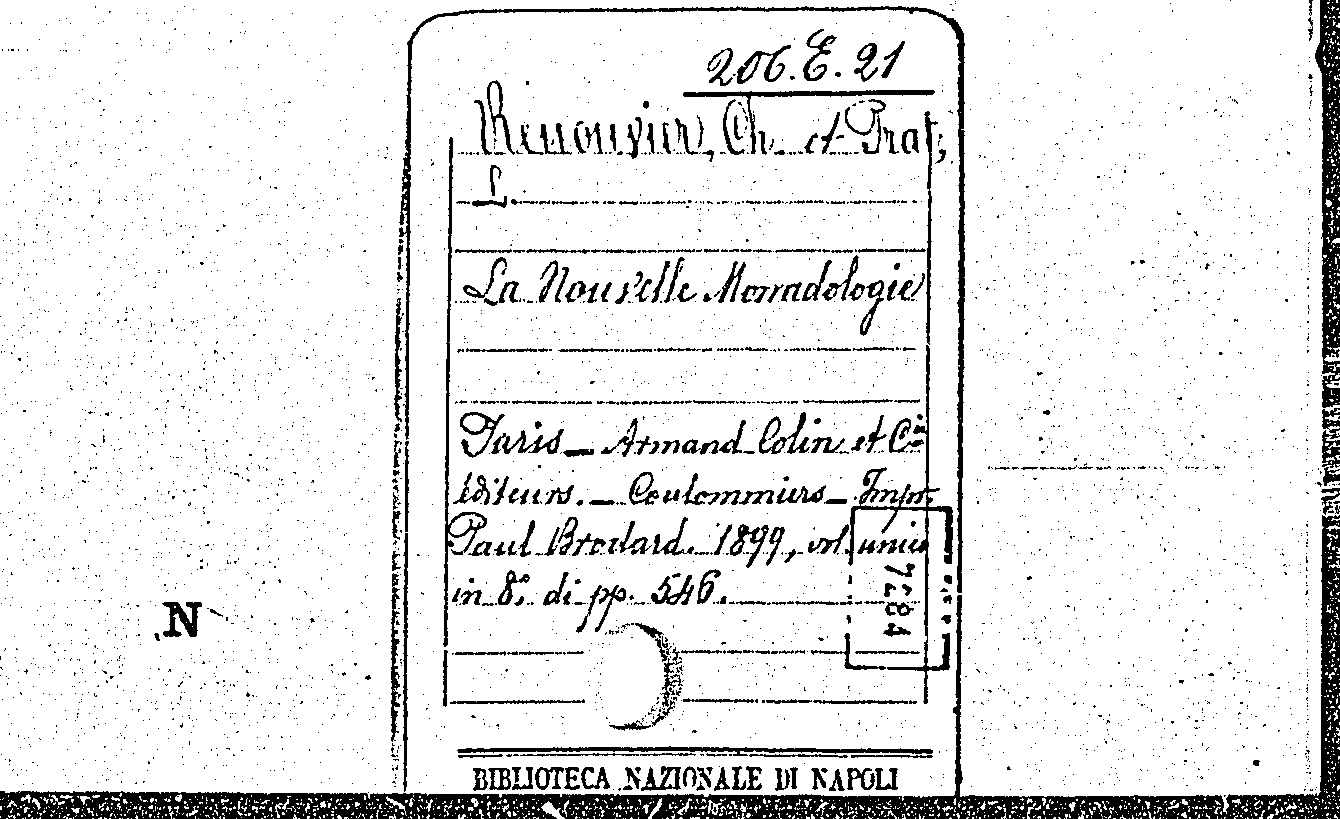 206.E.21
Renouvier, Ch. et Prat,
L.
La Nouvelle Monadologie
Paris_ Armand Colin et Cie
éditeurs. _ Coulommiers_ Impr.
Paul Brodard. 1899, vol. unico
in 8.° di pp. 546.
N
BIBLIOTECA NAZIONALE DI NAPOLI